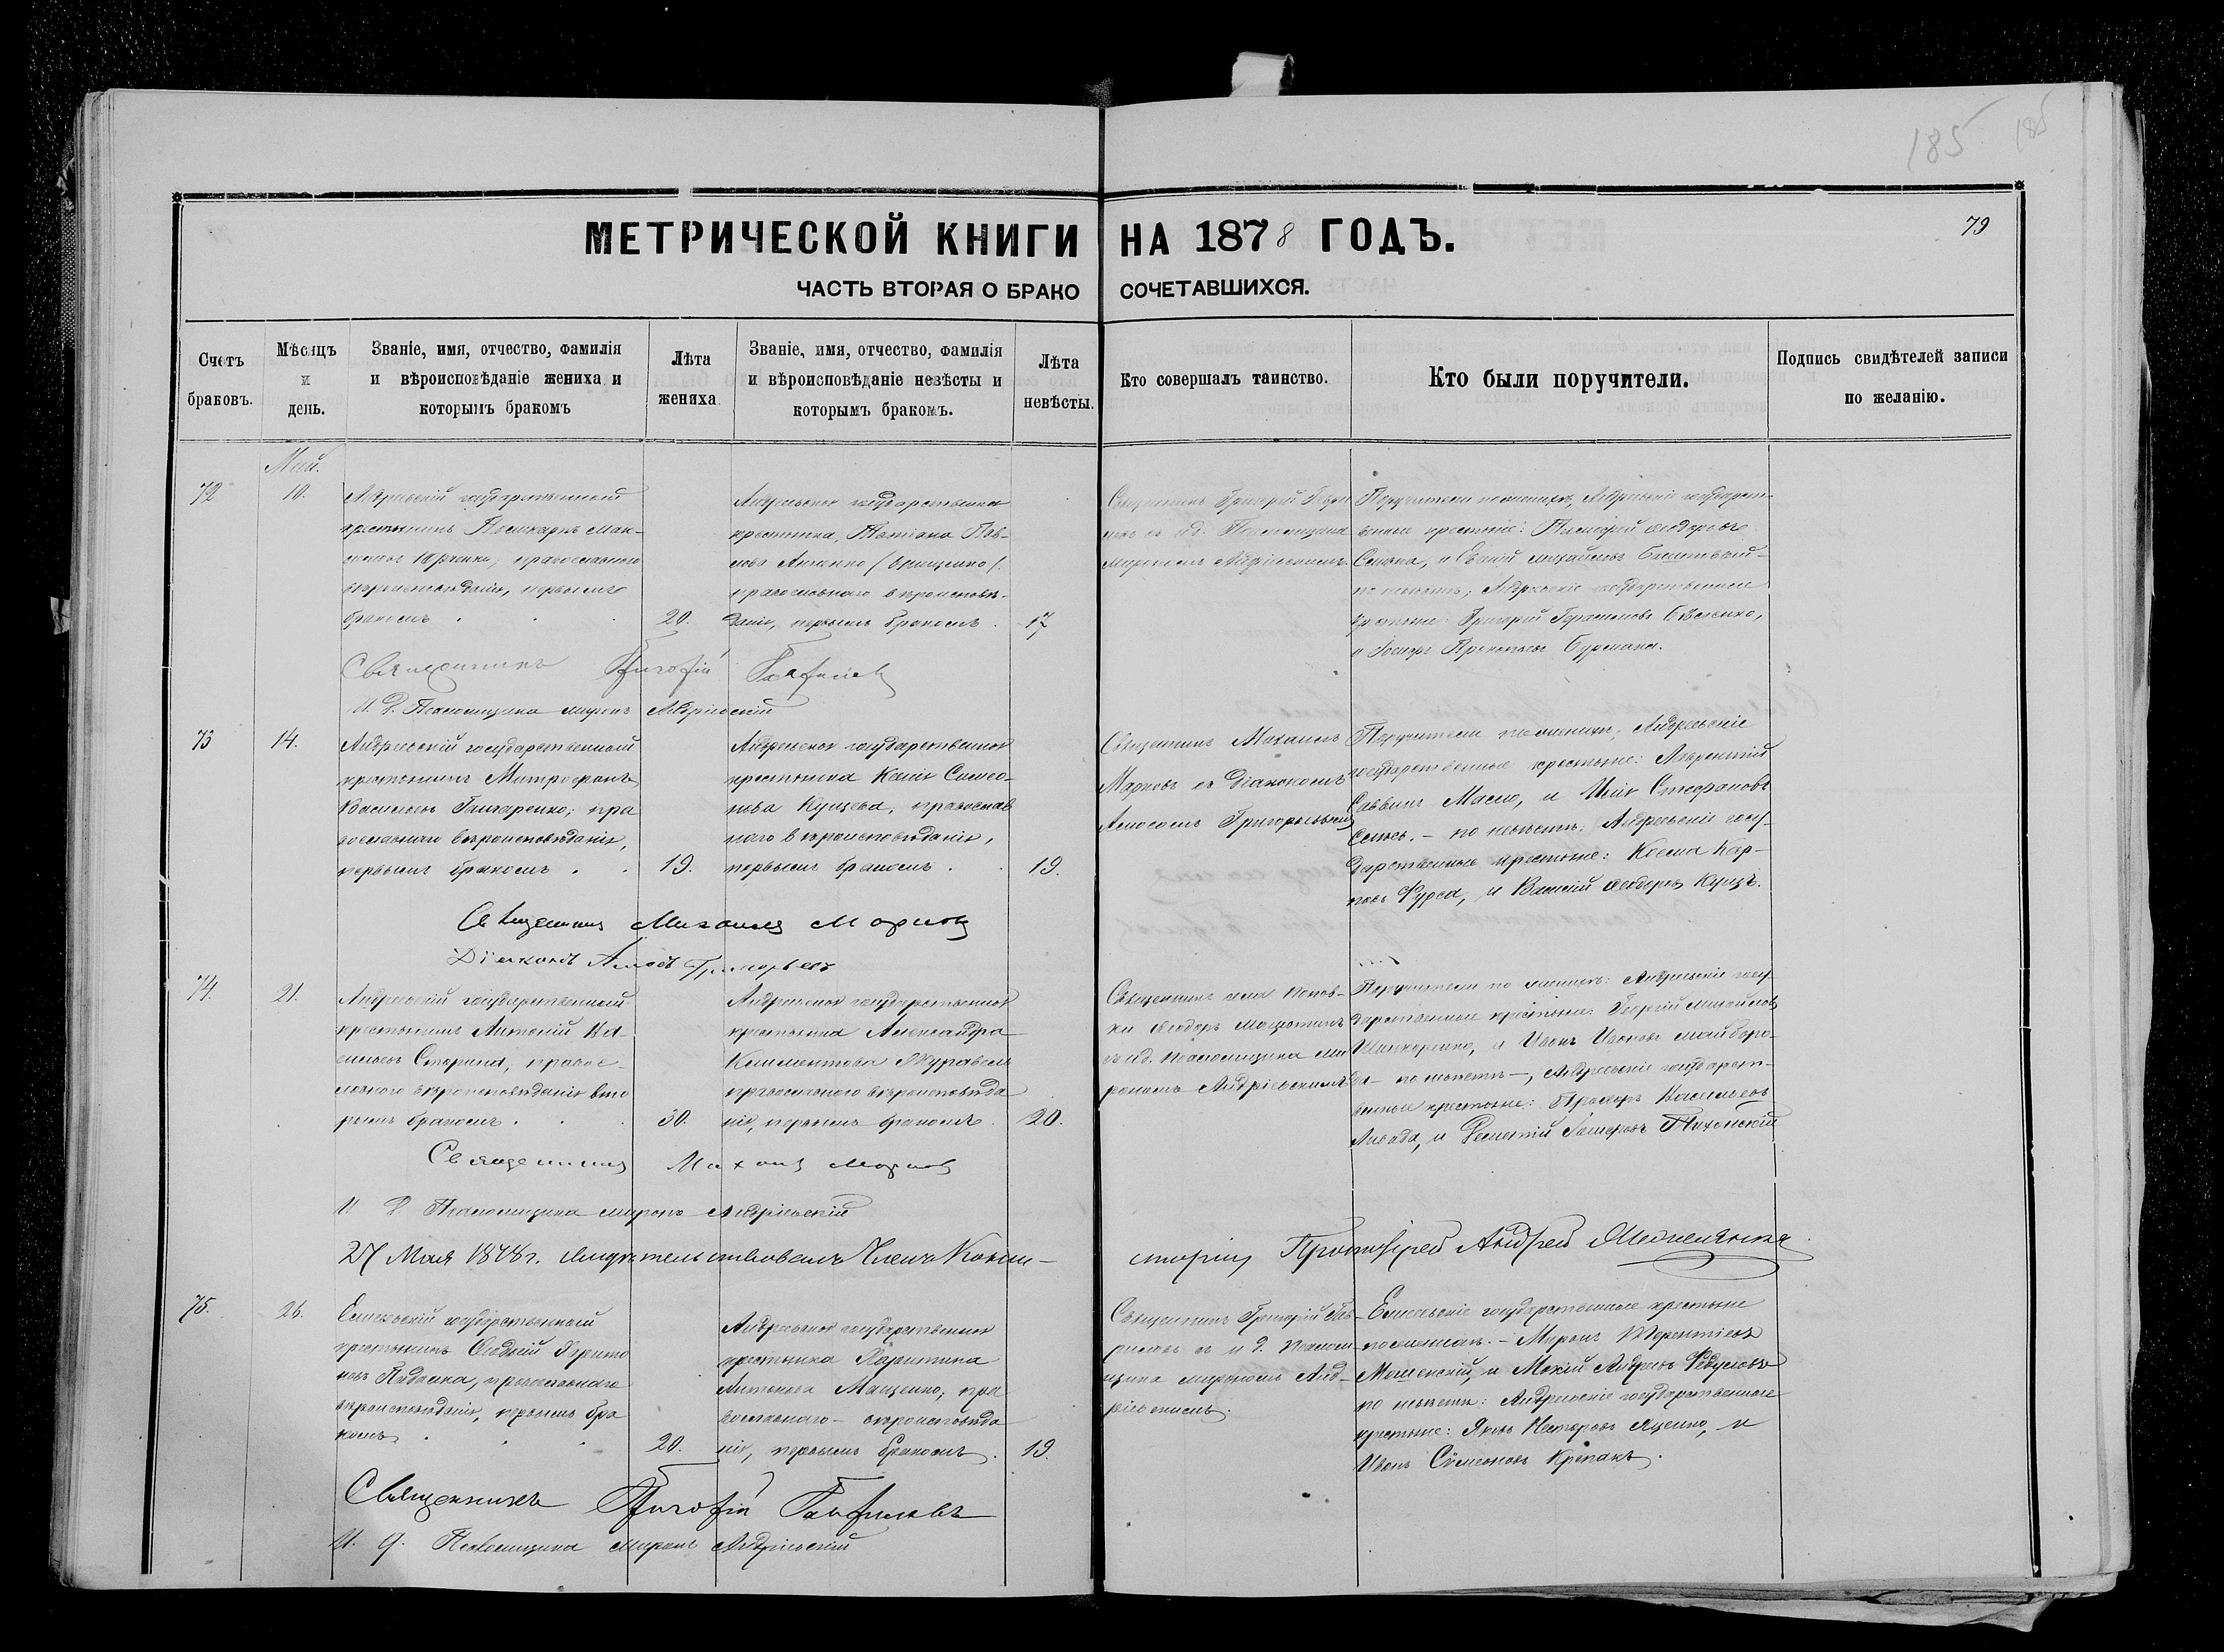 185 185
МЕТРИЧЕСКОЙ КНИГИ НА 1878 ГОДЪ.
79
ЧАСТЬ ВТОРАЯ О БРАКО СОЧЕТАВШИХСЯ.
Счетъ браковъ.
Мѣсяцъ и день.
Званіе, имя, отчество, фамилія
и вѣроисповѣданіе жениха и
которымъ бракомъ
Лѣта
жениха.
Званіе, имя, отчество, фамилія
и вѣроисповѣданіе невѣсты и
которымъ бракомъ.
Лѣта
невѣсты.
Кто совершалъ таинство.
Кто были поручители.
Подпись свидѣтелей записи
по желанію.
Май.
72
10.
государственный
крестьянинъ Поликарпъ Мак-
православнаго
вѣроисповѣданія, первымъ
бракомъ
20.
государственная
крестьянка, Татіана Пав-
лова
православнаго вѣроисповѣ-
данія, первымъ бракомъ.
17
Священникъ Григорій
Поручители по женихѣ,
крестьяне: Ѳеодоровъ
и
по невѣстѣ, государственные
крестьяне: Григорій Герасимовъ
и Прокопьевъ Бурмака.
Священникъ Григорій Гавриловъ
И. Д. Псаломщика Миронъ Андріевскій
73
14.
Андреевскій государственный
крестьянинъ Митрофанъ
Васильевъ Гончаренко, пра
вославнаго вѣроисповѣданія,
первымъ бракомъ
19.
Андреевская государственная
крестьянка Ксенія Симео-
нова Куцева, православ
наго вѣроисповѣданія,
первымъ бракомъ
19.
Священникъ Михаилъ
Марковъ съ Діакономъ
Амосомъ Григорьевымъ
Поручители по женихѣ, Андреевскіе
государственные крестьяне: Лаврентій
Саввинъ Масло, и Илія Стефановъ
по невѣстѣ: Андреевскіе госу-
дарственные крестьяне: Косма Кар-
повъ Фурса, и Василій Ѳеодоровъ Куцъ.
Священникъ Михаилъ Марковъ
Діаконъ Амосъ Григорьевъ
74.
21.
Андреевскій государственный
крестьянинъ Антоній Ва-
сильевъ правос-
лавнаго вѣроисповѣданія вто
рымъ бракомъ
30.
Андреевская государственная
крестьянка Александра
Климентова Журавель
православнаго вѣроисповѣда
нія, первымъ бракомъ
20.
Священникъ села Попов-
ки Ѳеодоръ
съ и д. Псаломщика Ми
рономъ Андріевскимъ
Поручители по женихѣ: Андреевскіе госу-
дарственные крестьяне: Георгій Михайловъ
Шинкаренко, и Иванъ Ивановъ Майборо-
да - по невѣстѣ -, Андреевскіе государст-
венные крестьяне: Прохоръ Васильевъ
Ливада, и Дементій
Священникъ Михаилъ Марковъ
И Д. Псаломщика Миронъ Андріевскій
27 Мая 1878 г. свидѣтельствовалъ Членъ Конси-
сторіи Протоіерей Андрей
75.
26.
государственный
крестьянинъ Харито
новъ православнаго
вѣроисповѣданія, первымъ бра
комъ
20.
Андреевская государственная
крестьянка Харитина
Антонова Мащенко, пра
вославнаго вѣроисповѣда
нія, первымъ бракомъ
19.
Священникъ Григорій Гав-
риловъ съ и д. Псалом
щика Мирономъ Анд-
ріевскимъ.
государственные крестьяне
по женихѣ. - Миронъ Терентіевъ
Мошенскій, и Мокій Андреевъ
по невѣстѣ: Андреевскіе государственные
крестьяне: Яковъ Несторовъ Яценко, и
Иванъ Симеоновъ Крепакъ.
Священникъ Григорій Гавриловъ
И. Д. Псаломщика Миронъ Андріевскій